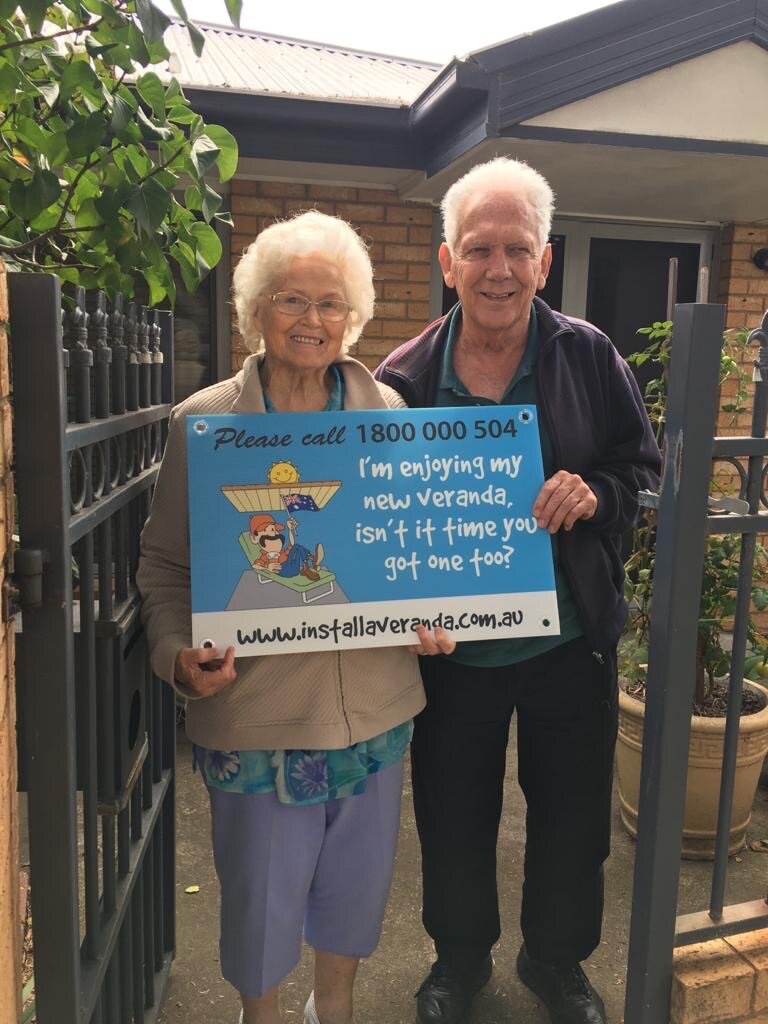 Please call 1800 000 504
I'm enjoying my
new veranda,
isn't it time you
got one too?
www.installaveranda.com.au